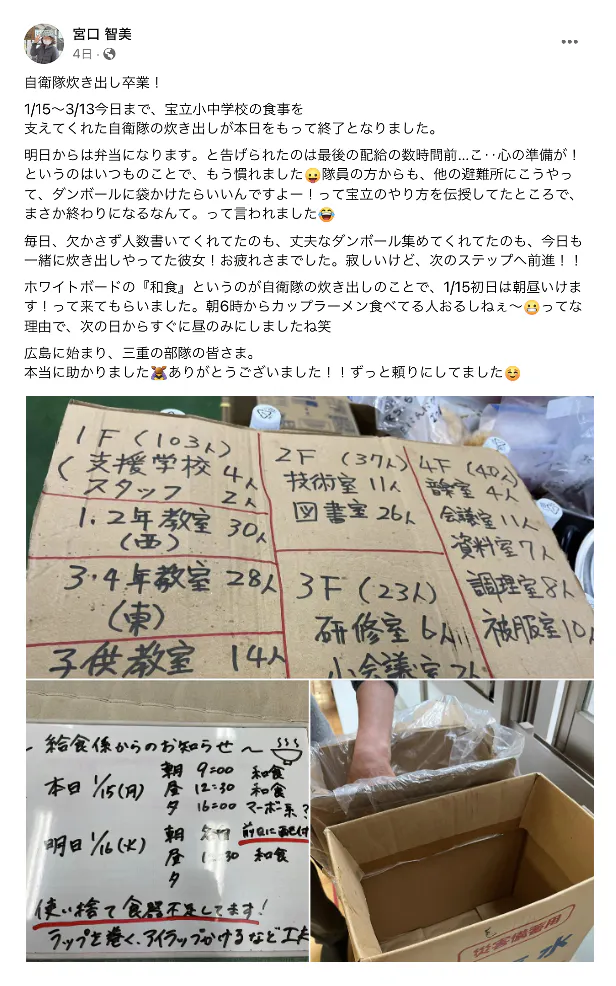 宮口 智美
4日
自衛隊炊き出し卒業！
1/15〜3/13今日まで、宝立小中学校の食事を
支えてくれた自衛隊の炊き出しが本日をもって終了となりました。
明日からは弁当になります。と告げられたのは最後の配給の数時間前…こ‥心の準備が！
というのはいつものことで、もう慣れました😜隊員の方からも、他の避難所にこうやっ
て、ダンボールに袋かけたらいいんですよー！って宝立のやり方を伝授してたところで、
まさか終わりになるなんて。って言われました😂
毎日、欠かさず人数書いてくれてたのも、丈夫なダンボール集めてくれてたのも、今日も
一緒に炊き出しやってた彼女！お疲れさまでした。寂しいけど、次のステップへ前進！！
ホワイトボードの『和食』というのが自衛隊の炊き出しのことで、1/15初日は朝昼いけま
す！って来てもらいました。朝6時からカップラーメン食べてる人おるしねぇ〜😬ってな
理由で、次の日からすぐに昼のみにしましたね笑
広島に始まり、三重の部隊の皆さま。
本当に助かりました🙇ありがとうございました！！ずっと頼りにしてました😊
1F（103人）
（支援学校 4人
スタッフ 2人
1.2年教室 30人
（西）
3・4年教室 28人
（東）
子供教室 14人
2F（37人）
技術室 11人
図書室 26人
3F（23人）
研修室 6人
小会議室 7人
4F（40人）
音楽室 4人
会議室 11人
資料室 7人
調理室 8人
被服室 10人
〜 給食係からのお知らせ 〜
本日 1/15(月) 朝 9:00 和食
昼 12:30 和食
夕 16:00 マーボー系?
明日 1/16(火) 朝 前日に配付
昼 30 和食
夕
使い捨て食器不足してます!
ラップを巻く、アイラップかけるなど工夫
災害備蓄用
水